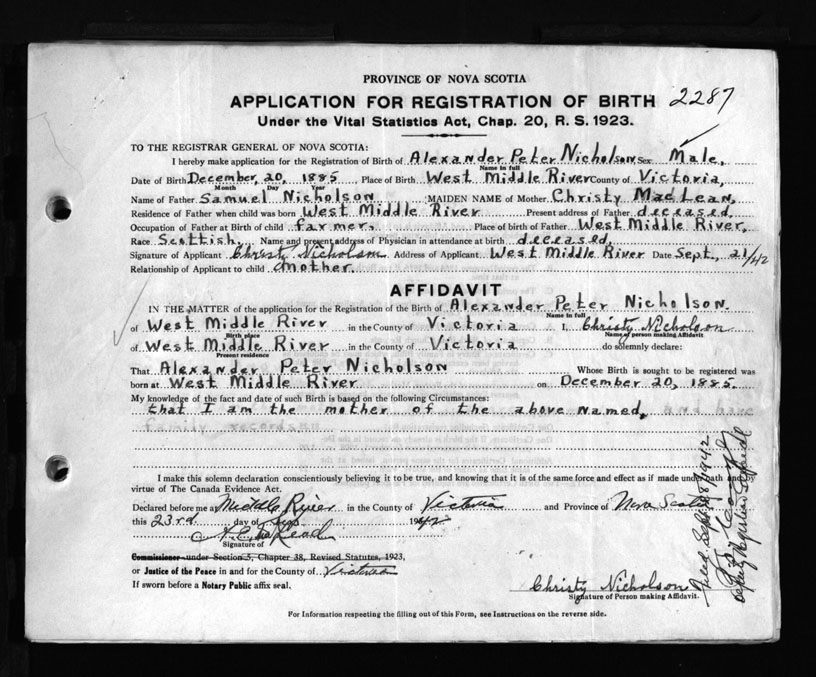 PROVINCE OF NOVA SCOTIA
APPLICATION FOR REGISTRATION OF BIRTH 2287
Under the Vital Statistics Act, Chap. 20, R. S. 1923.
TO THE REGISTRAR GENERAL OF NOVA SCOTIA:
I hereby make application for the Registration of Birth of Alexander Peter Nicholson Sex Male,
Name in full
Date of Birth December, 20, 1885 Place of Birth West Middle River County of Victoria,
Month Day Year
Name of Father Samuel Nicholson MAIDEN NAME of Mother Christy MacLean,
Residence of Father when child was born West Middle River Present address of Father deceased.
Occupation of Father at Birth of child farmer, Place of birth of Father West Middle River,
Race Scottish, Name and present address of Physician in attendance at birth deceased,
Signature of Applicant Christy Nicholson Address of Applicant West Middle River Date Sept, 21/42
Relationship of Applicant to child Mother.
AFFIDAVIT
IN THE MATTER of the application for the Registration of the Birth of Alexander Peter Nicholson.
Name in full
of West Middle River in the County of Victoria I, Christy Nicholson
Birth place Name of person making Affidavit
of West Middle River in the County of Victoria do solemnly declare:
Present residence
That Alexander Peter Nicholson Whose Birth is sought to be registered was
born at West Middle River on December 20, 1885.
My knowledge of the fact and date of such Birth is based on the following Circumstances:
that I am the mother of the above named, and have
family records
I make this solemn declaration conscientiously believing it to be true, and knowing that it is of the same force and effect as if made under oath and
virtue of The Canada Evidence Act.
Declared before me at Middle River in the County of Victoria and Province of Nova Scotia
this 23rd day of 1942
Signature of
Commissioner under Section 5, Chapter 38, Revised Statutes, 1923,
or Justice of the Peace in and for the County of Victoria
If sworn before a Notary Public affix seal.
Christy Nicholson
Signature of Person making Affidavit.
Filed Sept 28/1942
Deputy Registrar General
For Information respecting the filling out of this Form, see Instructions on the reverse side.